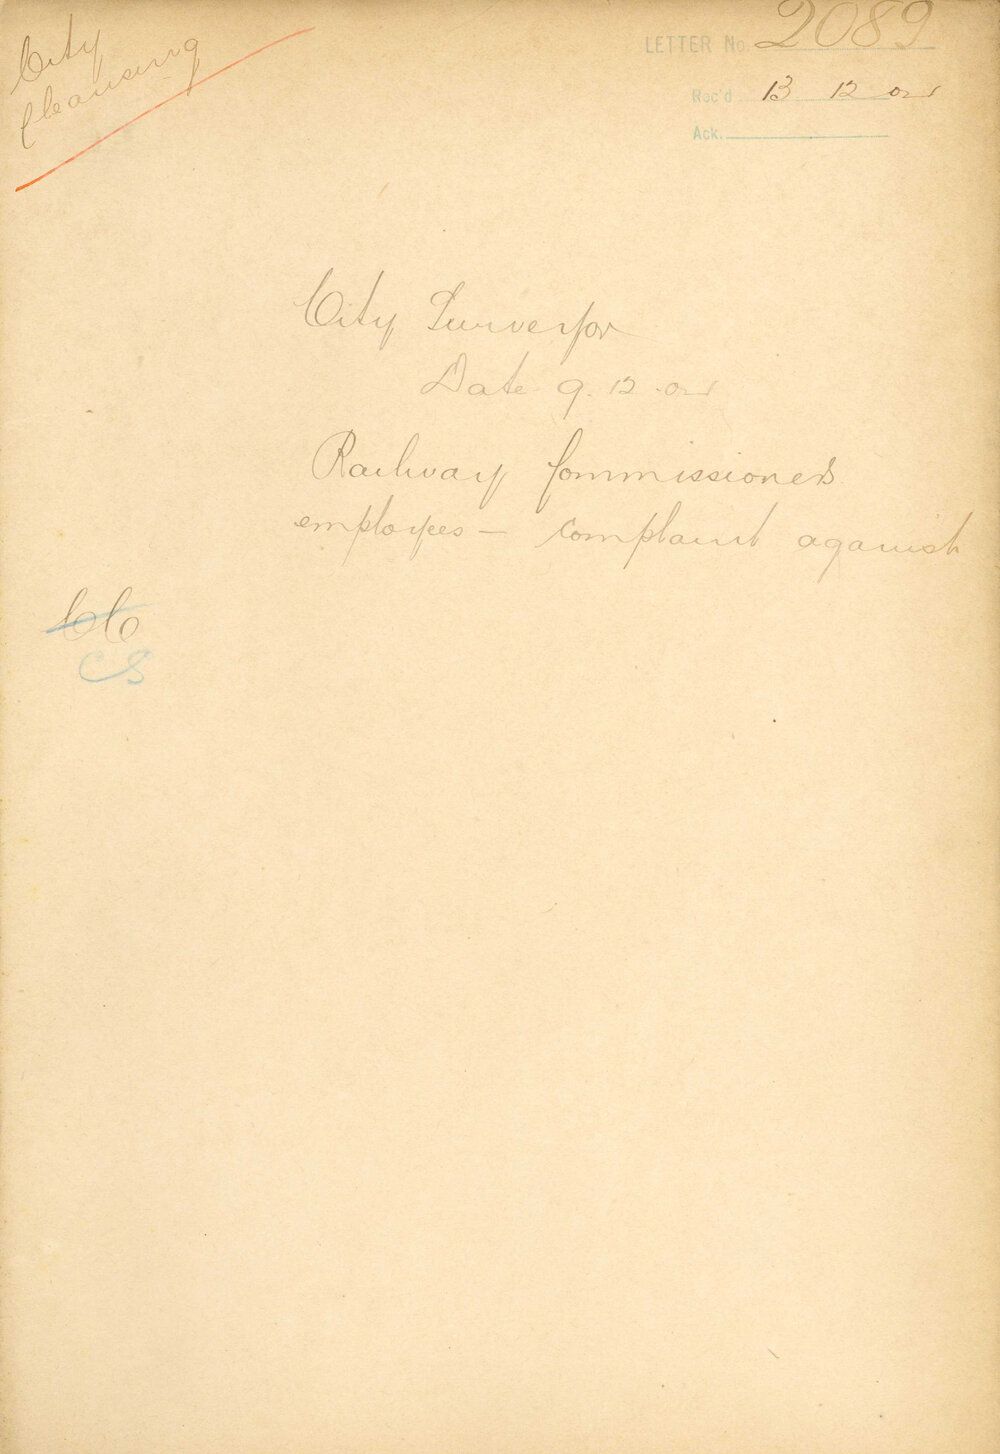 City
Cleansing
LETTER No. 2089
Rec'd 13 12 02
Ack.
City Surveyor
Date 9.12.02
Railway Commissioners
employees — complaint against
CC
CS